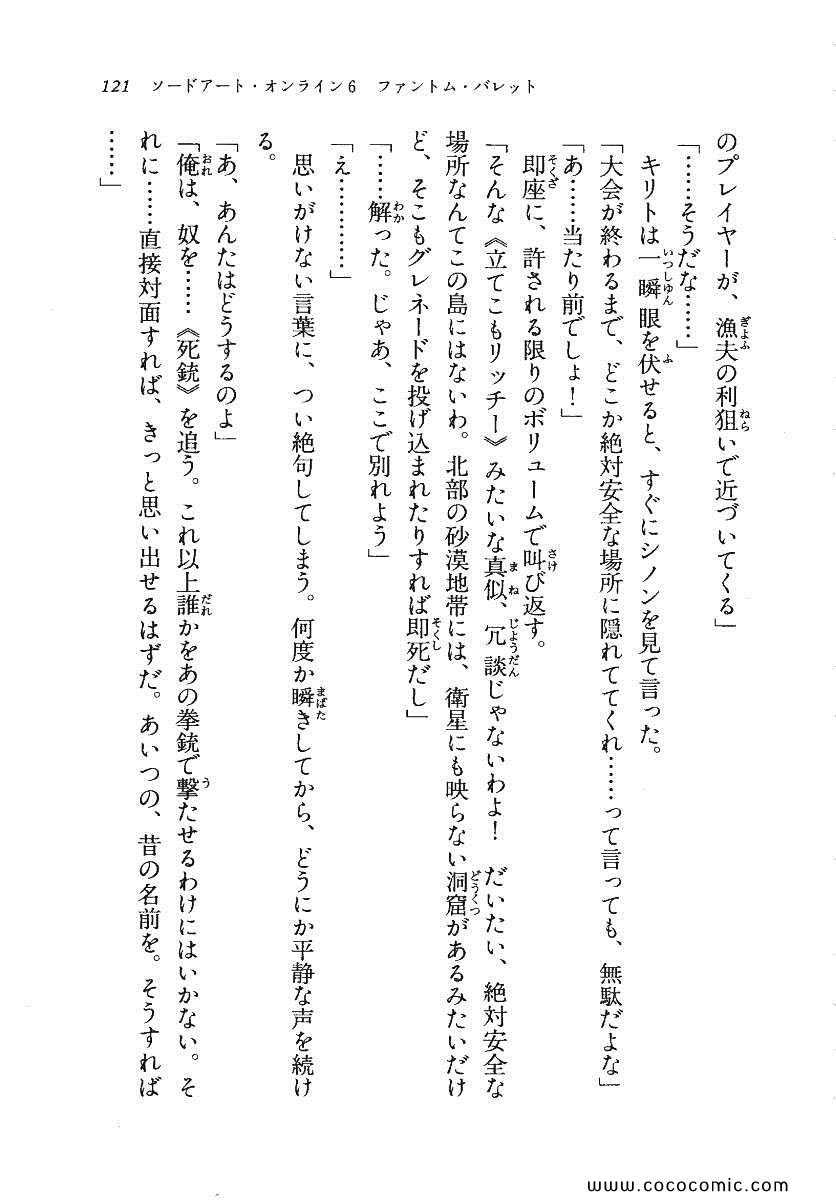 121　ソードアート・オンライン6　ファントム・バレット
のプレイヤーが、漁夫の利狙いで近づいてくる」
「……そうだな……」
　キリトは一瞬眼を伏せると、すぐにシノンを見て言った。
「大会が終わるまで、どこか絶対安全な場所に隠れててくれ……って言っても、無駄だよな」
「あ……当たり前でしょ！」
　即座に、許される限りのボリュームで叫び返す。
「そんな《立てこもリッチー》みたいな真似、冗談じゃないわよ！　だいたい、絶対安全な
場所なんてこの島にはないわ。北部の砂漠地帯には、衛星にも映らない洞窟があるみたいだけ
ど、そこもグレネードを投げ込まれたりすれば即死だし」
「……解った。じゃあ、ここで別れよう」
「え…………」
　思いがけない言葉に、つい絶句してしまう。何度か瞬きしてから、どうにか平静な声を続け
る。
「あ、あんたはどうするのよ」
「俺は、奴を……《死銃》を追う。これ以上誰かをあの拳銃で撃たせるわけにはいかない。そ
れに……直接対面すれば、きっと思い出せるはずだ。あいつの、昔の名前を。そうすれば
……」
http://www.cococomic.com/